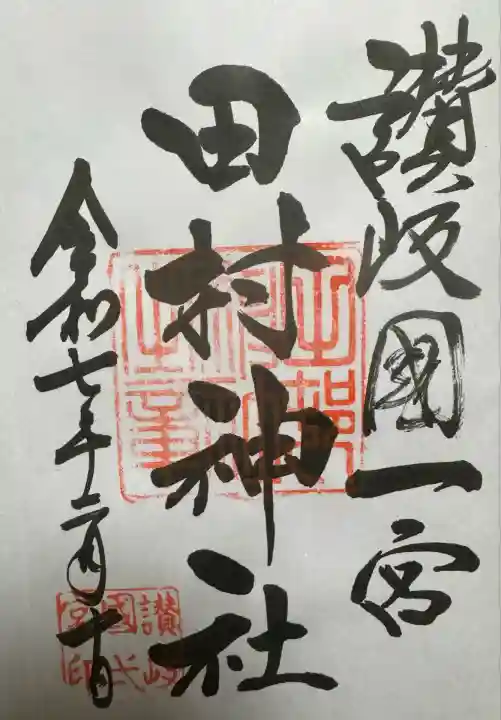 讃岐國一宮
田村神社
令和七年二月十日
讃岐國一宮印